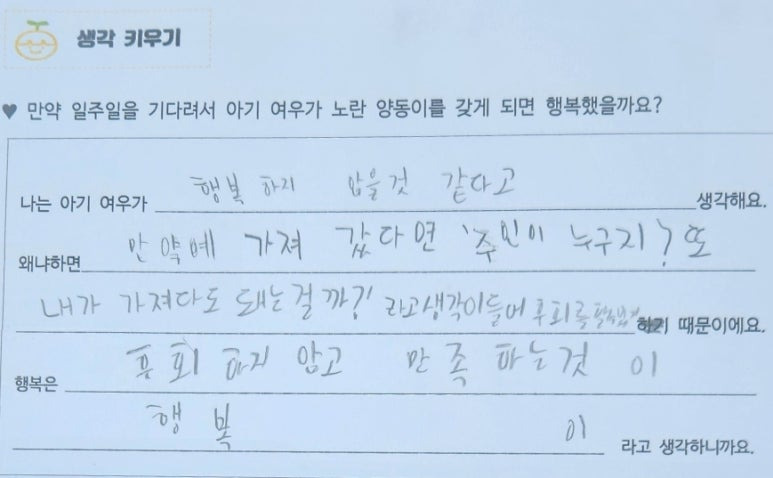 생각 키우기
♥ 만약 일주일을 기다려서 아기 여우가 노란 양동이를 갖게 되면 행복했을까요?
나는 아기 여우가 행복 하지 않을것 같다고 생각해요.
왜냐하면 만약에 가져 갔다면 '주인이 누구지? 또
내가 가져다도 돼는걸까?' 라고생각이들어 후회를 때문이에요.
행복은 후회 하지 암고 만족 하는것 이
행복 이 라고 생각하니까요.